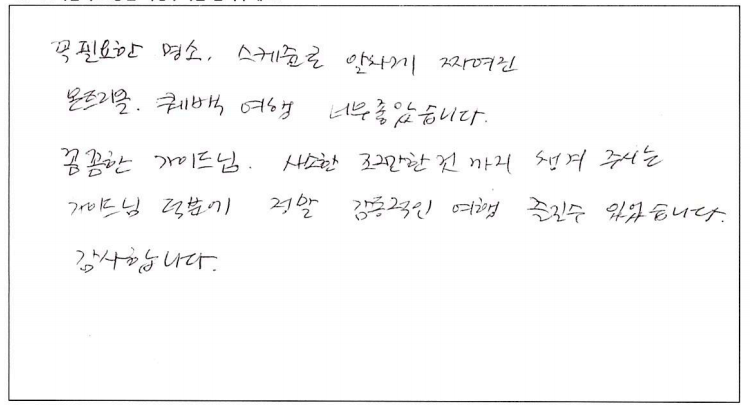 꼭필요한 명소, 스케쥴로 알차게 짜여진
몬트리올. 퀘백 여행 너무좋았습니다.
꼼꼼한 가이드님. 사소한 조그만한것 까지 챙겨 주시는
가이드님 덕분에 정말 감동적인 여행 즐길수 있었습니다.
감사합니다.